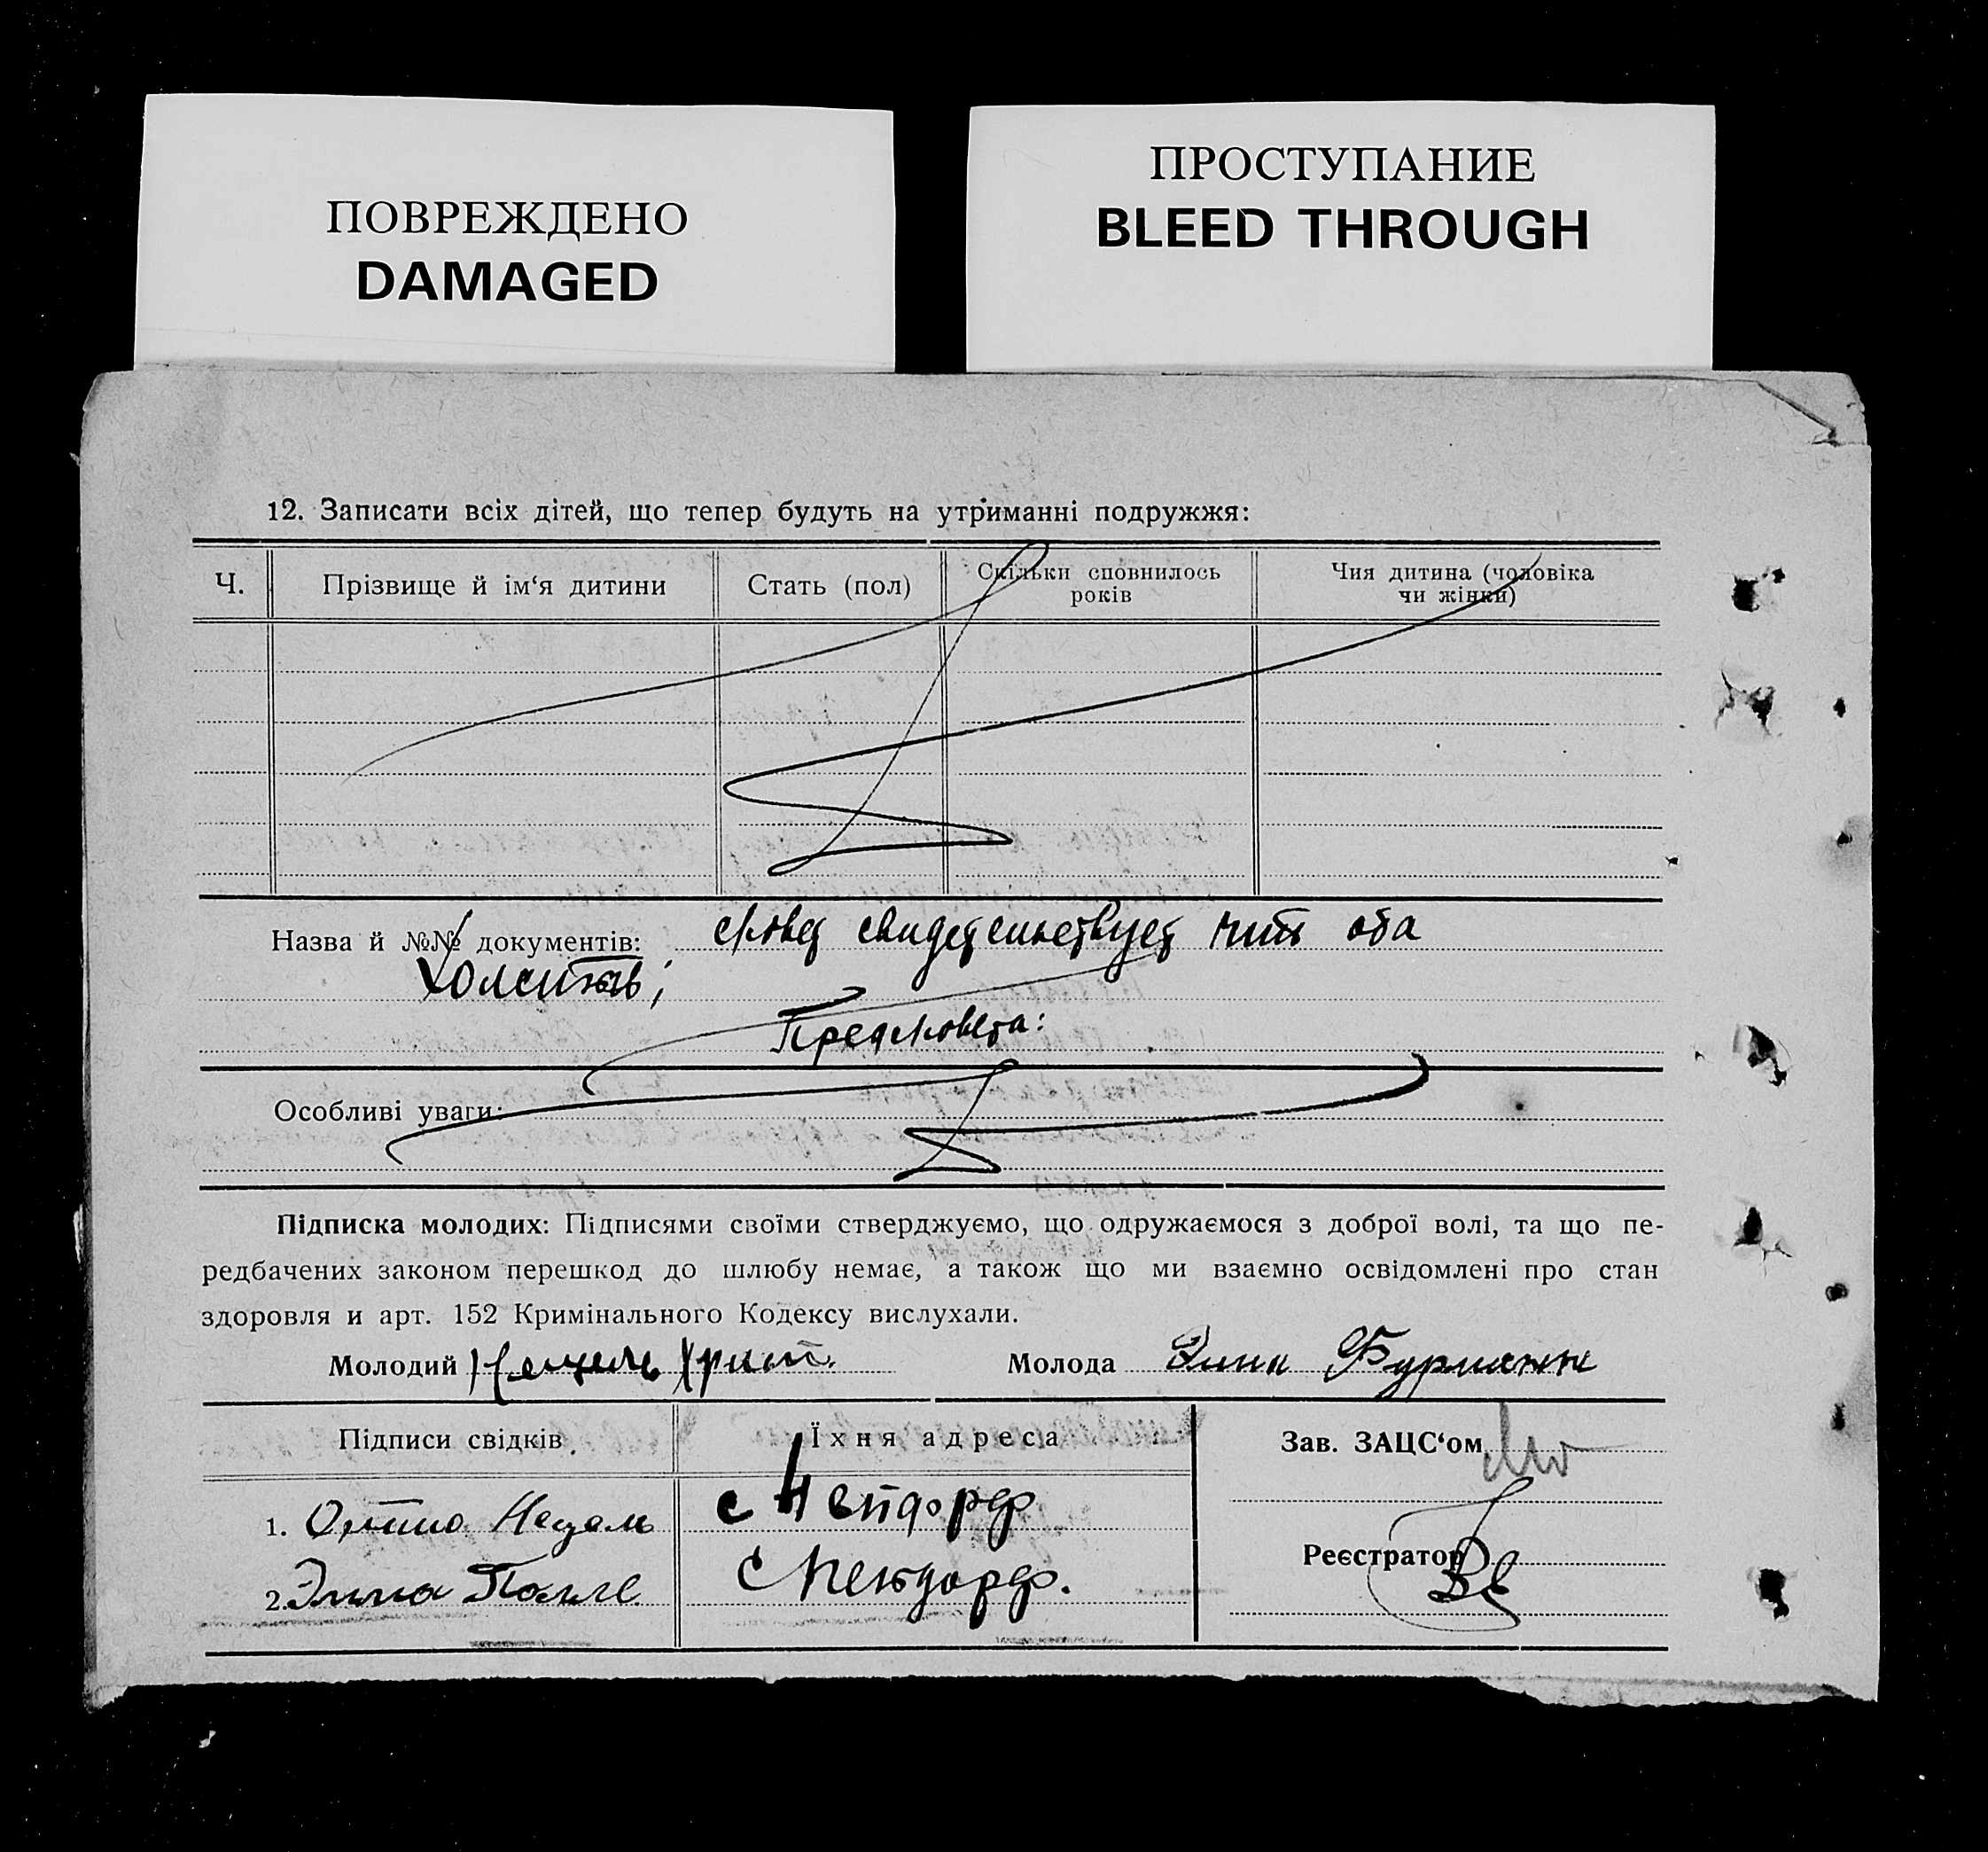 ПОВРЕЖДЕНО
DAMAGED
ПРОСТУПАНИЕ
BLEED THROUGH
12. Записати всіх дітей, що тепер будуть на утриманні подружжя:
Ч.
Прізвище й ім‘я дитини
Стать (пол)
Скільки сповнилось
років
Чия дитина (чоловіка
чи жінки)
Назва й №№ документів: оба
Особливі уваги:
Підписка молодих: Підписями своїми стверджуємо, що одружаємося з доброї волі, та що пе-
редбачених законом перешкод до шлюбу немає, а також що ми взаємно освідомлені про стан
здоровля и арт. 152 Кримінального Кодексу вислухали.
Молодий
Молода Фурманн
Підписи свідків
Їхня адреса
Зав. ЗАЦС‘ом
1. Отто с
2. Эмма с
Реєстратор